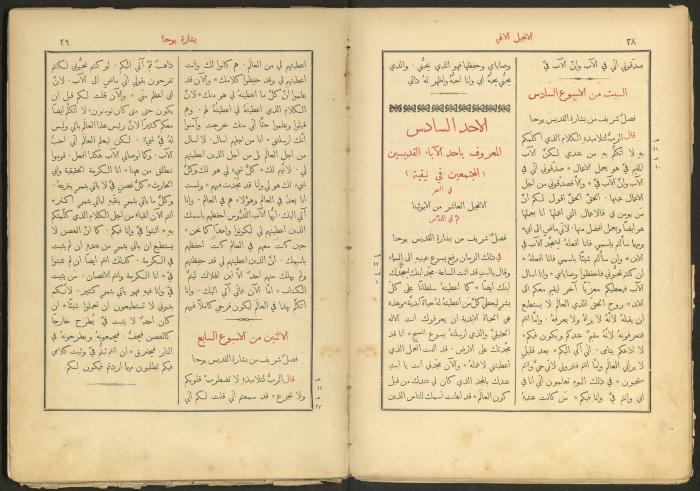 ٢٨
الانجيل الالهي
صدقوني اني في الآب وان الآب فيّ
السبت من الاسبوع السادس
فصل شريف من بشارة القديس يوحنا
قال الرب لتلاميذه الكلام الذي اكلمكم
به لا اتكلم به من عندي لكن الآب
المقيم فيّ هو يعمل الاعمال * صدقوني اني في
الآب وان الآب فيّ * والا فصدقوني من اجل
الاعمال عينها * الحق الحق اقول لكم ان
من يؤمن بي فالاعمال التي اعملها انا يعملها
هو ايضًا ويعمل افضل منها * لاني ماضٍ الى ابي *
ومهما سألتم باسمي فانا افعله * ليتمجد الآب في
الابن * وان سألتم شيئًا باسمي فانا افعله *
ان كنتم تحبوني فاحفظوا وصاياي * وانا اسأل
الآب فيعطيكم معزيًا آخر ليقيم معكم الى
الابد * روح الحق الذي العالم لا يستطيع
ان يقبله لانه لا يراه ولا يعرفه * وانتم
فتعرفونه لانه مقيم عندكم ويكون فيكم *
لا ادعكم يتامى * اني آتي اليكم * بعد قليل
لا يراني العالم وانتم فتروني لاني حي وانتم
ستحيون * في ذلك اليوم تعلمون اني انا في
ابي وانتم فيّ وانا فيكم * من كانت عنده
وصاياي وحفظها فهو الذي يحبني * والذي
يحبني يحبه ابي وانا احبه واظهر له ذاتي
الاحد السادس
المعروف باحد الآباء القديسين
(المجتمعين في نيقية)
في السحر
الانجيل العاشر من الايوثينا
ثم في القداس
فصل شريف من بشارة القديس يوحنا
في ذلك الزمان رفع يسوع عينيه الى السماء
وقال يا ابت قد اتت الساعة * مجد ابنك ليمجدك
ابنك ايضًا * كما اعطيته سلطانًا على كل
بشر ليعطي كل من اعطيته له حياة ابدية * وهذه
هي الحياة الابدية ان يعرفوك انت الاله
الحقيقي والذي ارسلته يسوع المسيح * انا قد
مجدتك على الارض * قد اتممت العمل الذي
اعطيتني لاعمله * والآن مجدني انت يا ابت
عندك بالمجد الذي كان لي عندك من قبل
كون العالم * قد اعلنت اسمك للناس الذين
بشارة يوحنا
٢٩
اعطيتهم لي من العالم * هم كانوا لك وانت
اعطيتهم لي وقد حفظوا كلامك * والآن قد
علموا ان كل ما اعطيته لي هو منك * لان
الكلام الذي اعطيته لي اعطيته لهم * وهم
قبلوا وعلموا حقًا اني منك خرجت وآمنوا
انك ارسلتني * انا من اجلهم اسأل * لا اسأل
من اجل العالم بل من اجل الذين اعطيتهم
لي * لانهم لك * وكل شيء لي هو لك وكل
شيء لك هو لي وانا قد مجدت فيهم * ولست
انا بعد في العالم وهؤلاء هم في العالم * وانا
آتي اليك * ايها الآب القدوس احفظهم باسمك
الذين اعطيتهم لي ليكونوا واحدًا كما نحن *
حين كنت معهم في العالم كنت احفظهم
باسمك * ان الذين اعطيتهم لي قد حفظتهم
ولم يهلك منهم احد الا ابن الهلاك ليتم
الكتاب * اما الآن فاني آتي اليك * وانا
اتكلم بهذا في العالم ليكون فرحي كاملًا فيهم
الاثنين من الاسبوع السابع
فصل شريف من بشارة القديس يوحنا
قال الرب لتلاميذه لا تضطرب قلوبكم
ولا تجزع * قد سمعتم اني قلت لكم اني
ذاهب ثم آتي اليكم * لو كنتم تحبوني لكنتم
تفرحون بقولي اني ماضٍ الى الآب * لان
ابي اعظم مني * والآن قلت لكم قبل ان
يكون حتى متى كان تؤمنون * لا اتكلم ايضًا
معكم كثيرًا لان رئيس هذا العالم يأتي وليس
له فيّ شيء * ولكن ليعلم العالم اني احب
الآب * وكما اوصاني الآب هكذا افعل * قوموا
ننطلق من ههنا * انا الكرمة الحقيقية وابي
الحارث * كل غصن فيّ لا يأتي بثمر ينزعه *
وكل ما يأتي بثمر ينقيه ليأتي بثمر اكثر *
انتم الآن انقياء من اجل الكلام الذي كلمتكم
به * اثبتوا فيّ وانا فيكم * كما ان الغصن لا
يستطيع ان يأتي بثمر من عنده ان لم يثبت
في الكرمة * كذلك انتم ايضًا ان لم تثبتوا
فيّ * انا الكرمة وانتم الاغصان * من يثبت
فيّ وانا فيه فهو يأتي بثمر كثير * لانكم
بدوني لا تستطيعون ان تعملوا شيئًا * ان
كان احد لا يثبت فيّ يُطرح خارجًا
كالغصن فيجف * فيجمعونه ويطرحونه في
النار فيحترق * ان انتم ثبتم فيّ وثبت كلامي
فيكم تطلبون مهما اردتم فيكون لكم